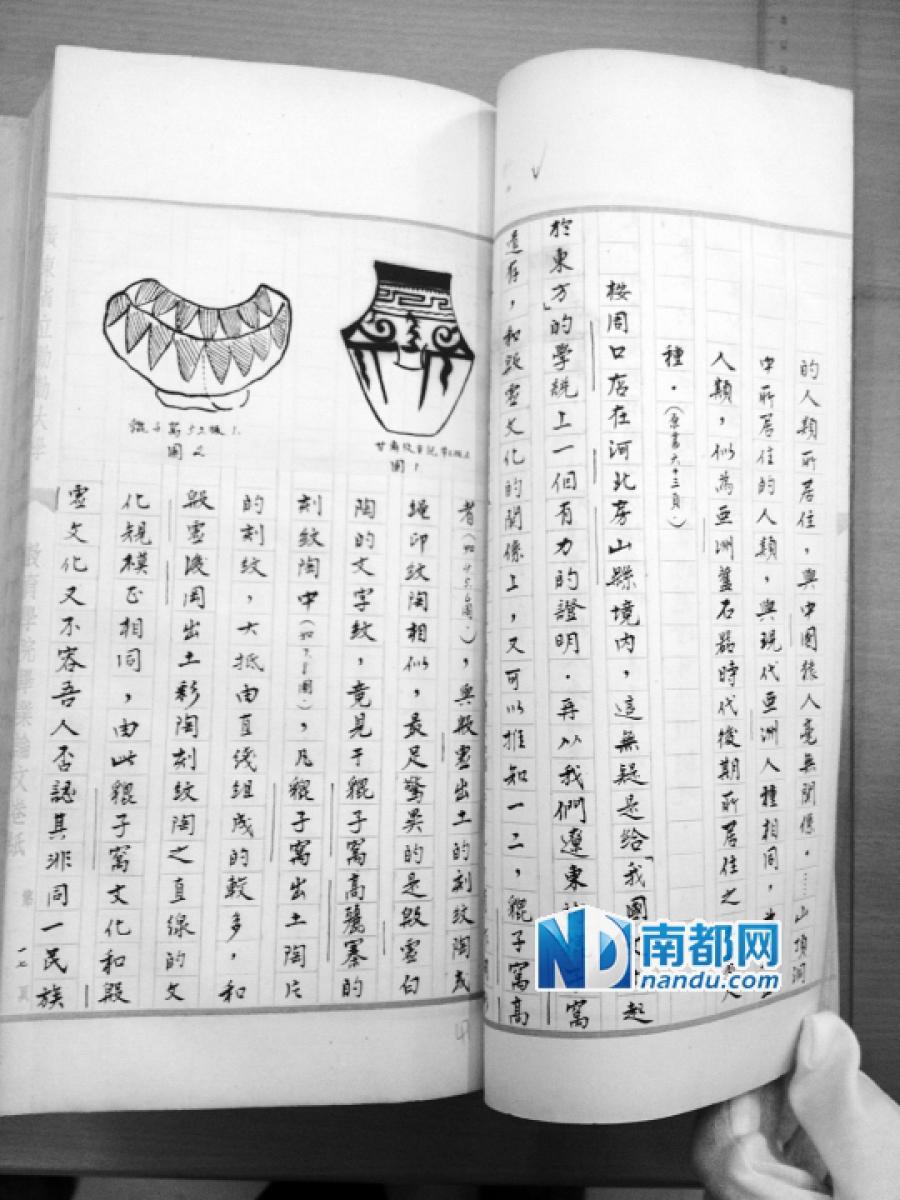 的人類所居住，與中國猿人毫無關係。……山頂洞
中所居住的人類，與現代亞洲人種相同，
人類，似為亞洲舊石器時代後期所居住之
種。（原書六十三頁。）
按周口店在河北房山縣境內，這無疑是給「我國 起
於東方」的學統上一個有力的證明。再以我們遼東 窩
遺存，和殷虛文化的關係上，又可以推知一二，貔子窩高
甘肅
圖1
圖2
者（如 圖。），與殷虛出土的刻紋陶或
繩印紋陶相似，最足驚異的是殷虛白
陶的文字紋，竟見于貔子窩高麗寨的
刻紋陶中（如 圖。），凡貔子窩出土陶片
的刻紋，大抵由直綫組成的較多，和
殷虛後岡出土彩陶刻紋陶之直線的文
化規模正相同，由此貔子窩文化和殷
虛文化又不容吾人否認其非同一民族
廣東省立勷勤大學 教育學院畢業論文卷紙 第 一七 頁
南都网
nandu.com